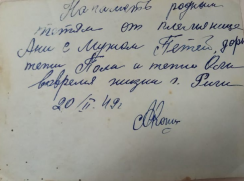 На память родным
тетям от племянницы
Ани с мужем Петей, дорог
тети Поля и тети Оли
вовремя жизни г. Риги
20/II.49г.